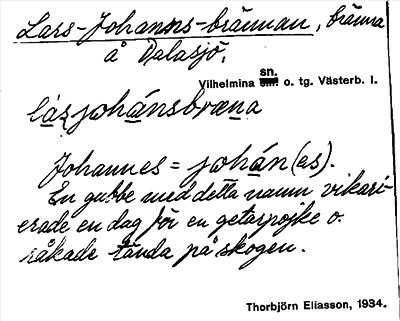 Lars-Johannes-brännan, bränna
å Dalasjö.
Vilhelmina sn. o. tg. Västerb. l.
la̤sjohánsbræna
Johannes = johán(as).
En gubbe med detta namn vikari-
erade en dag för en getarpojke o.
råkade tända på skogen.
Thorbjörn Eliasson, 1934.